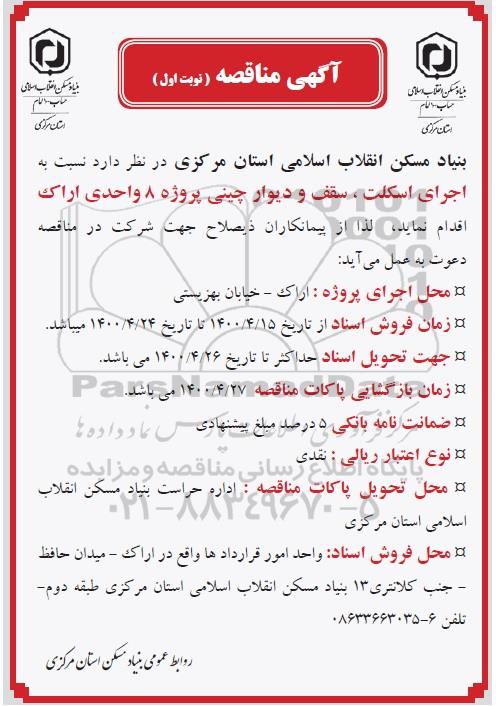 آگهی مناقصه (نوبت اول)
بنیاد مسکن انقلاب اسلامی
حساب ۱۰۰ امام
استان مرکزی
بنیاد مسکن انقلاب اسلامی
حساب ۱۰۰ امام
استان مرکزی
بنیاد مسکن انقلاب اسلامی استان مرکزی در نظر دارد نسبت به
اجرای اسکلت ، سقف و دیوار چینی پروژه ۸ واحدی اراک
اقدام نماید، لذا از پیمانکاران ذیصلاح جهت شرکت در مناقصه
دعوت به عمل می‌آید:
¤ محل اجرای پروژه : اراک - خیابان بهزیستی
¤ زمان فروش اسناد از تاریخ ۱۴۰۰/۴/۱۵ تا تاریخ ۱۴۰۰/۴/۲۴ میباشد.
¤ جهت تحویل اسناد حداکثر تا تاریخ ۱۴۰۰/۴/۲۶ می باشد.
¤ زمان بازگشایی پاکات مناقصه ۱۴۰۰/۴/۲۷ می باشد.
ParsNamadData
¤ ضمانت نامه بانکی ۵ درصد مبلغ پیشنهادی
مرکز فرآوری اطلاعات پارس نماد داده ها
¤ نوع اعتبار ریالی : نقدی
پایگاه اطلاع رسانی مناقصه و مزایده
¤ محل تحویل پاکات مناقصه : اداره حراست بنیاد مسکن انقلاب
۰۲۱-۸۸۳۴۹۶۷۰-۵
اسلامی استان مرکزی
¤ محل فروش اسناد: واحد امور قرارداد ها واقع در اراک - میدان حافظ
- جنب کلانتری۱۳ بنیاد مسکن انقلاب اسلامی استان مرکزی طبقه دوم-
تلفن ۶-۰۸۶۳۳۶۶۳۰۳۵
روابط عمومی بنیاد مسکن استان مرکزی